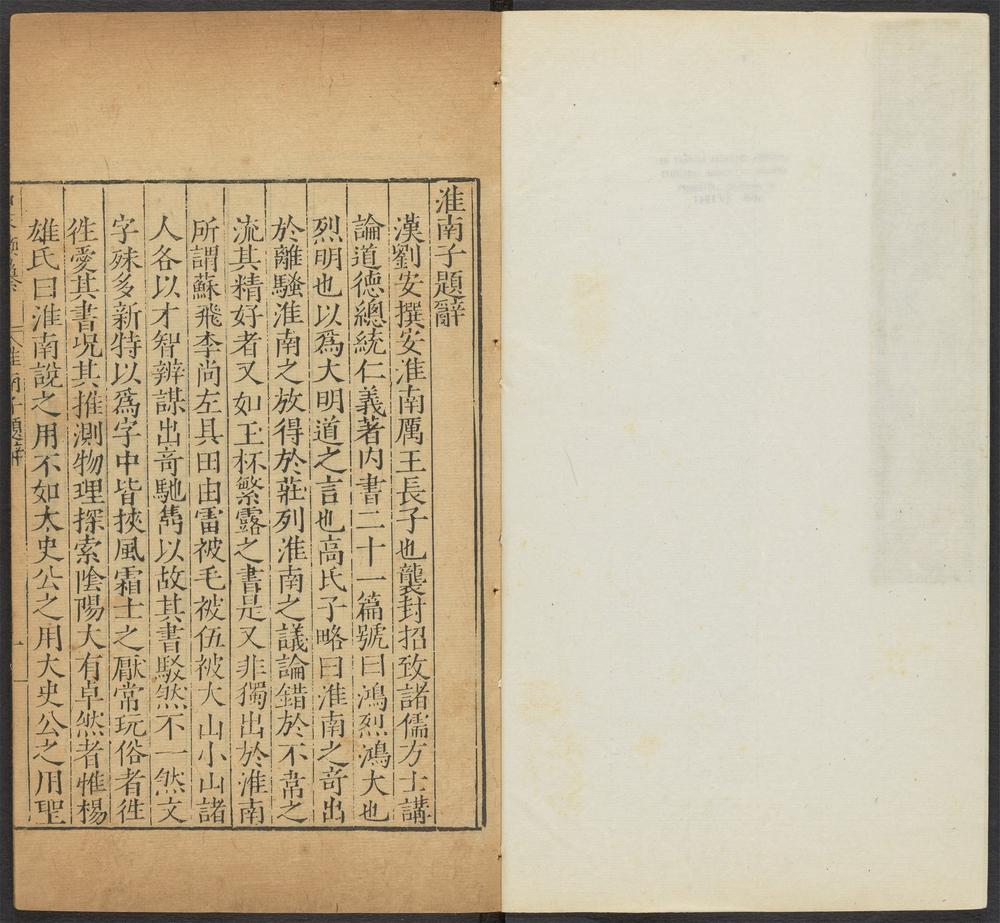 淮南子題辭
漢劉安撰安淮南厲王長子也襲封招致諸儒方士講
論道德總統仁義著内書二十一篇號曰鴻烈鴻大也
烈明也以爲大明道之言也高氏子略曰淮南之奇出
於離騷淮南之放得於莊列淮南之議論錯於不常之
流其精好者又如玉杯繁露之書是又非獨出於淮南
所謂蘇飛李尚左具田由雷被毛被伍被大山小山諸
人各以才智辨謀出奇馳雋以故其書駁然不一然文
字殊多新特以爲字中皆挾風霜士之厭常玩俗者徃
徃愛其書况其推測物理探索陰陽大有卓然者惟楊
雄氏曰淮南說之用不如太史公之用大史公之用聖
淮南子題辭
一